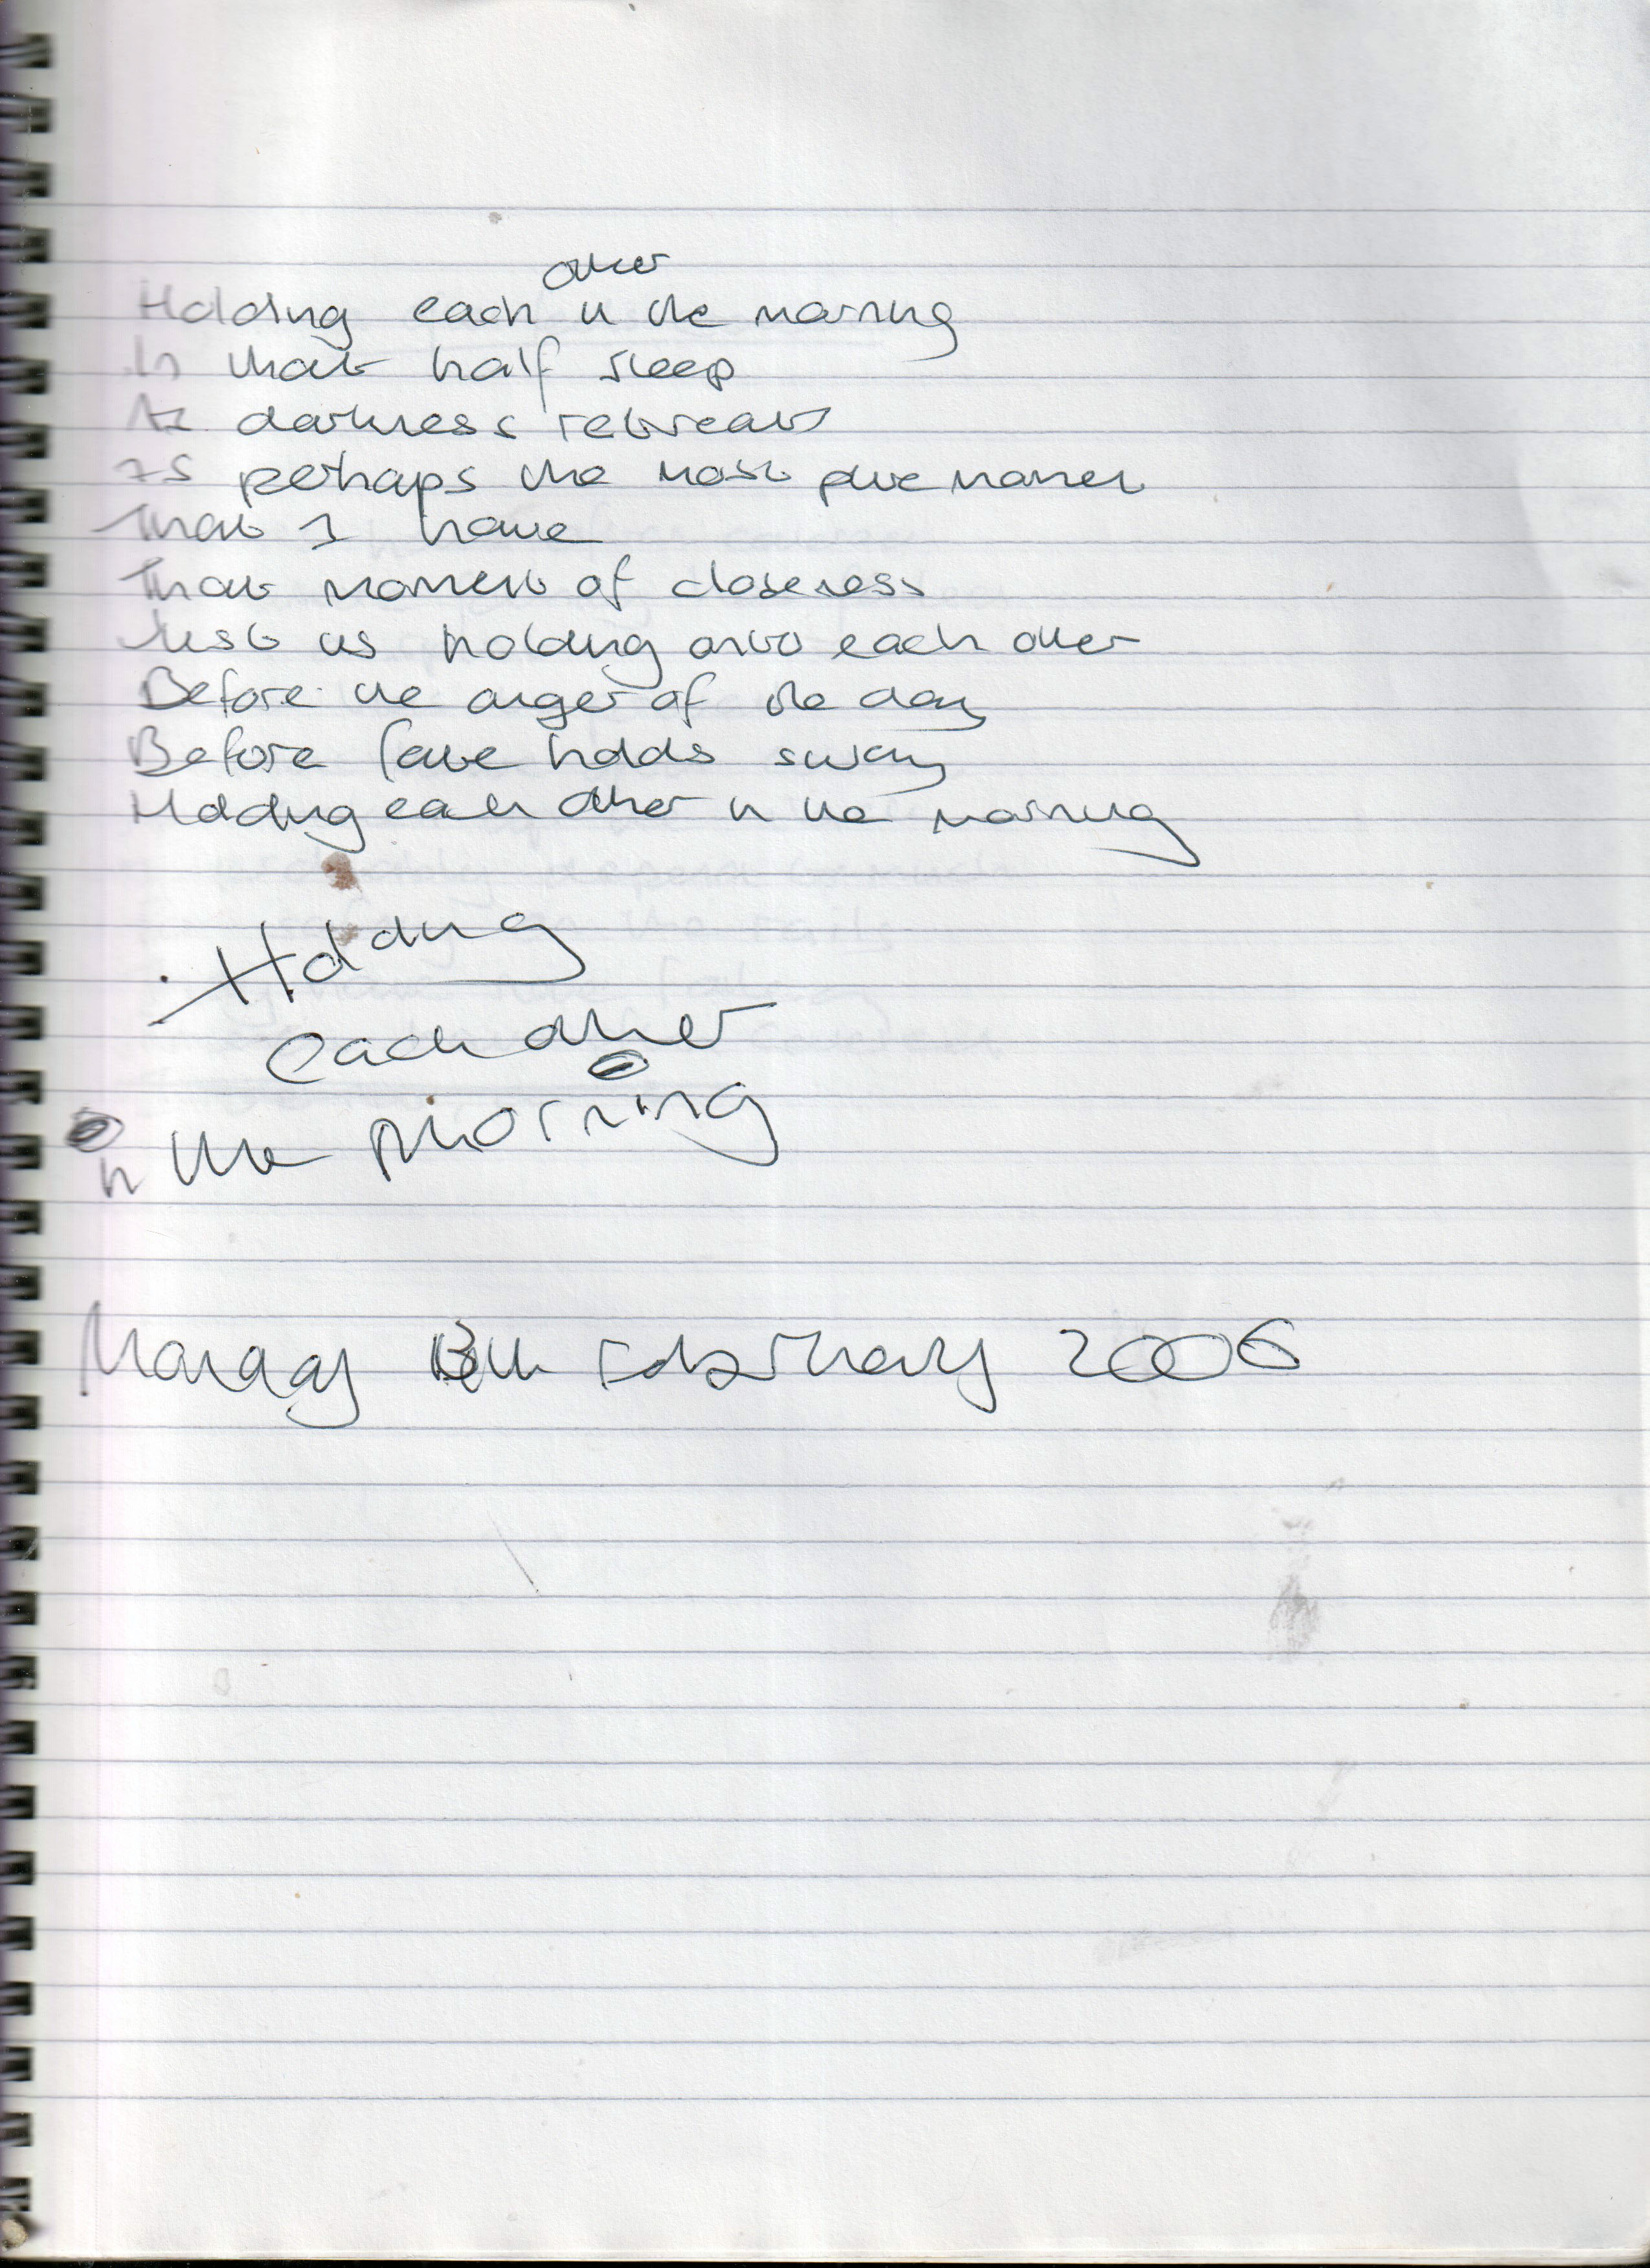 other
Holding each in the morning
In that half sleep
As darkness retreats
Is perhaps the most pure moment
That I have
That moment of closeness
Just us holding onto each other
Before the anger of the day
Before fate holds sway
Holding each other in the morning
Holding
each other
in the morning
Monday 13th February 2006